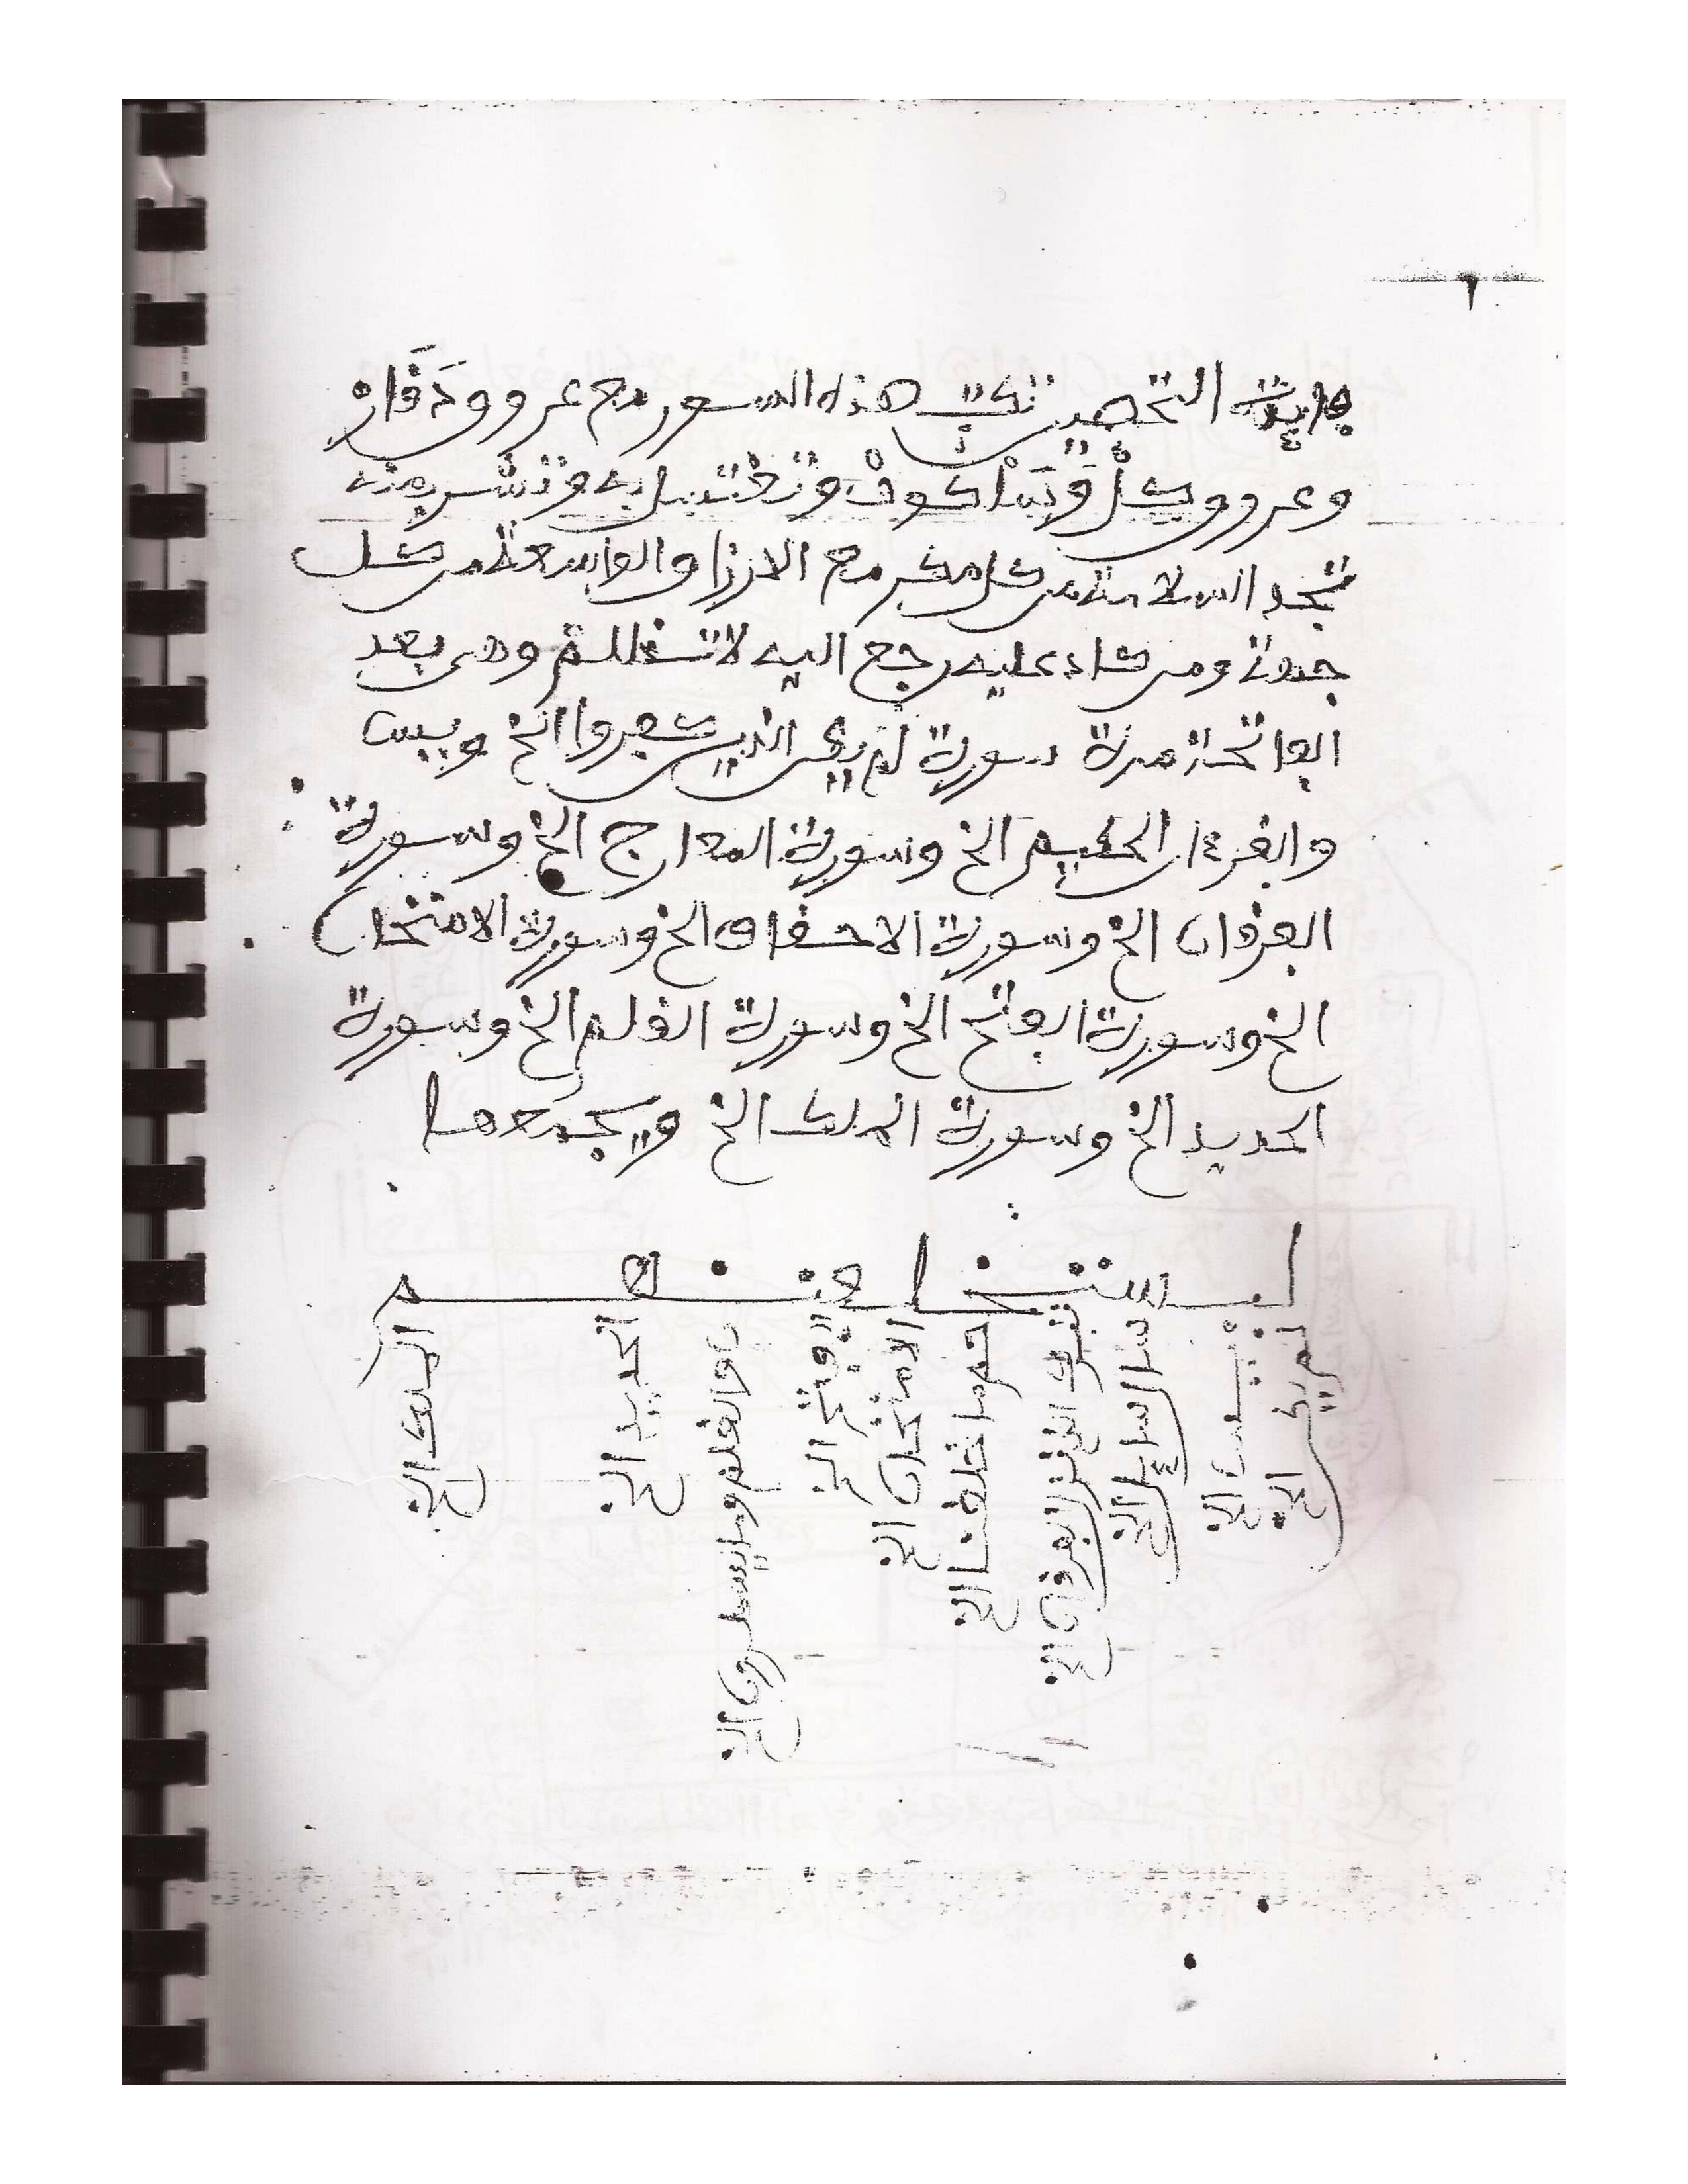 ١
فايدة التحصين تكتب هذه السور مع عروو دَقَارْ
وعروو كلْ وَتَمْلْكُونْ وتغتسل به وتشرب منه
تجد السلامة من كل مكر مع الارزاق الواسعة من كل
جهة ومن كاد عليه رجع اليه لا تظلم وهي بعد
الفاتحة مرة سورة لم يكن الذين كفروا الخ ويس
والقرءان الحكيم الخ وسورة المعارج الخ وسورة
الفرقان الخ وسورة الاحقاف الخ وسورة الامتحان
الخ وسورة الفتح الخ وسورة القلم الخ وسورة
الحديد الخ وسورة الملك الخ ويجمعها
ليستخلفنهم
لم يكن الخ
يس الخ
سال سايل الخ
تبرك الذي نزل الفرقان الخ
حم ما خلقنا الخ
الامتحان الخ
الفتح الخ
ن والقلم وما يسطرون الخ
الحديد الخ
الملك الخ